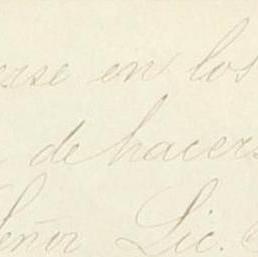 erse en los
de hacers
Señor Lic.